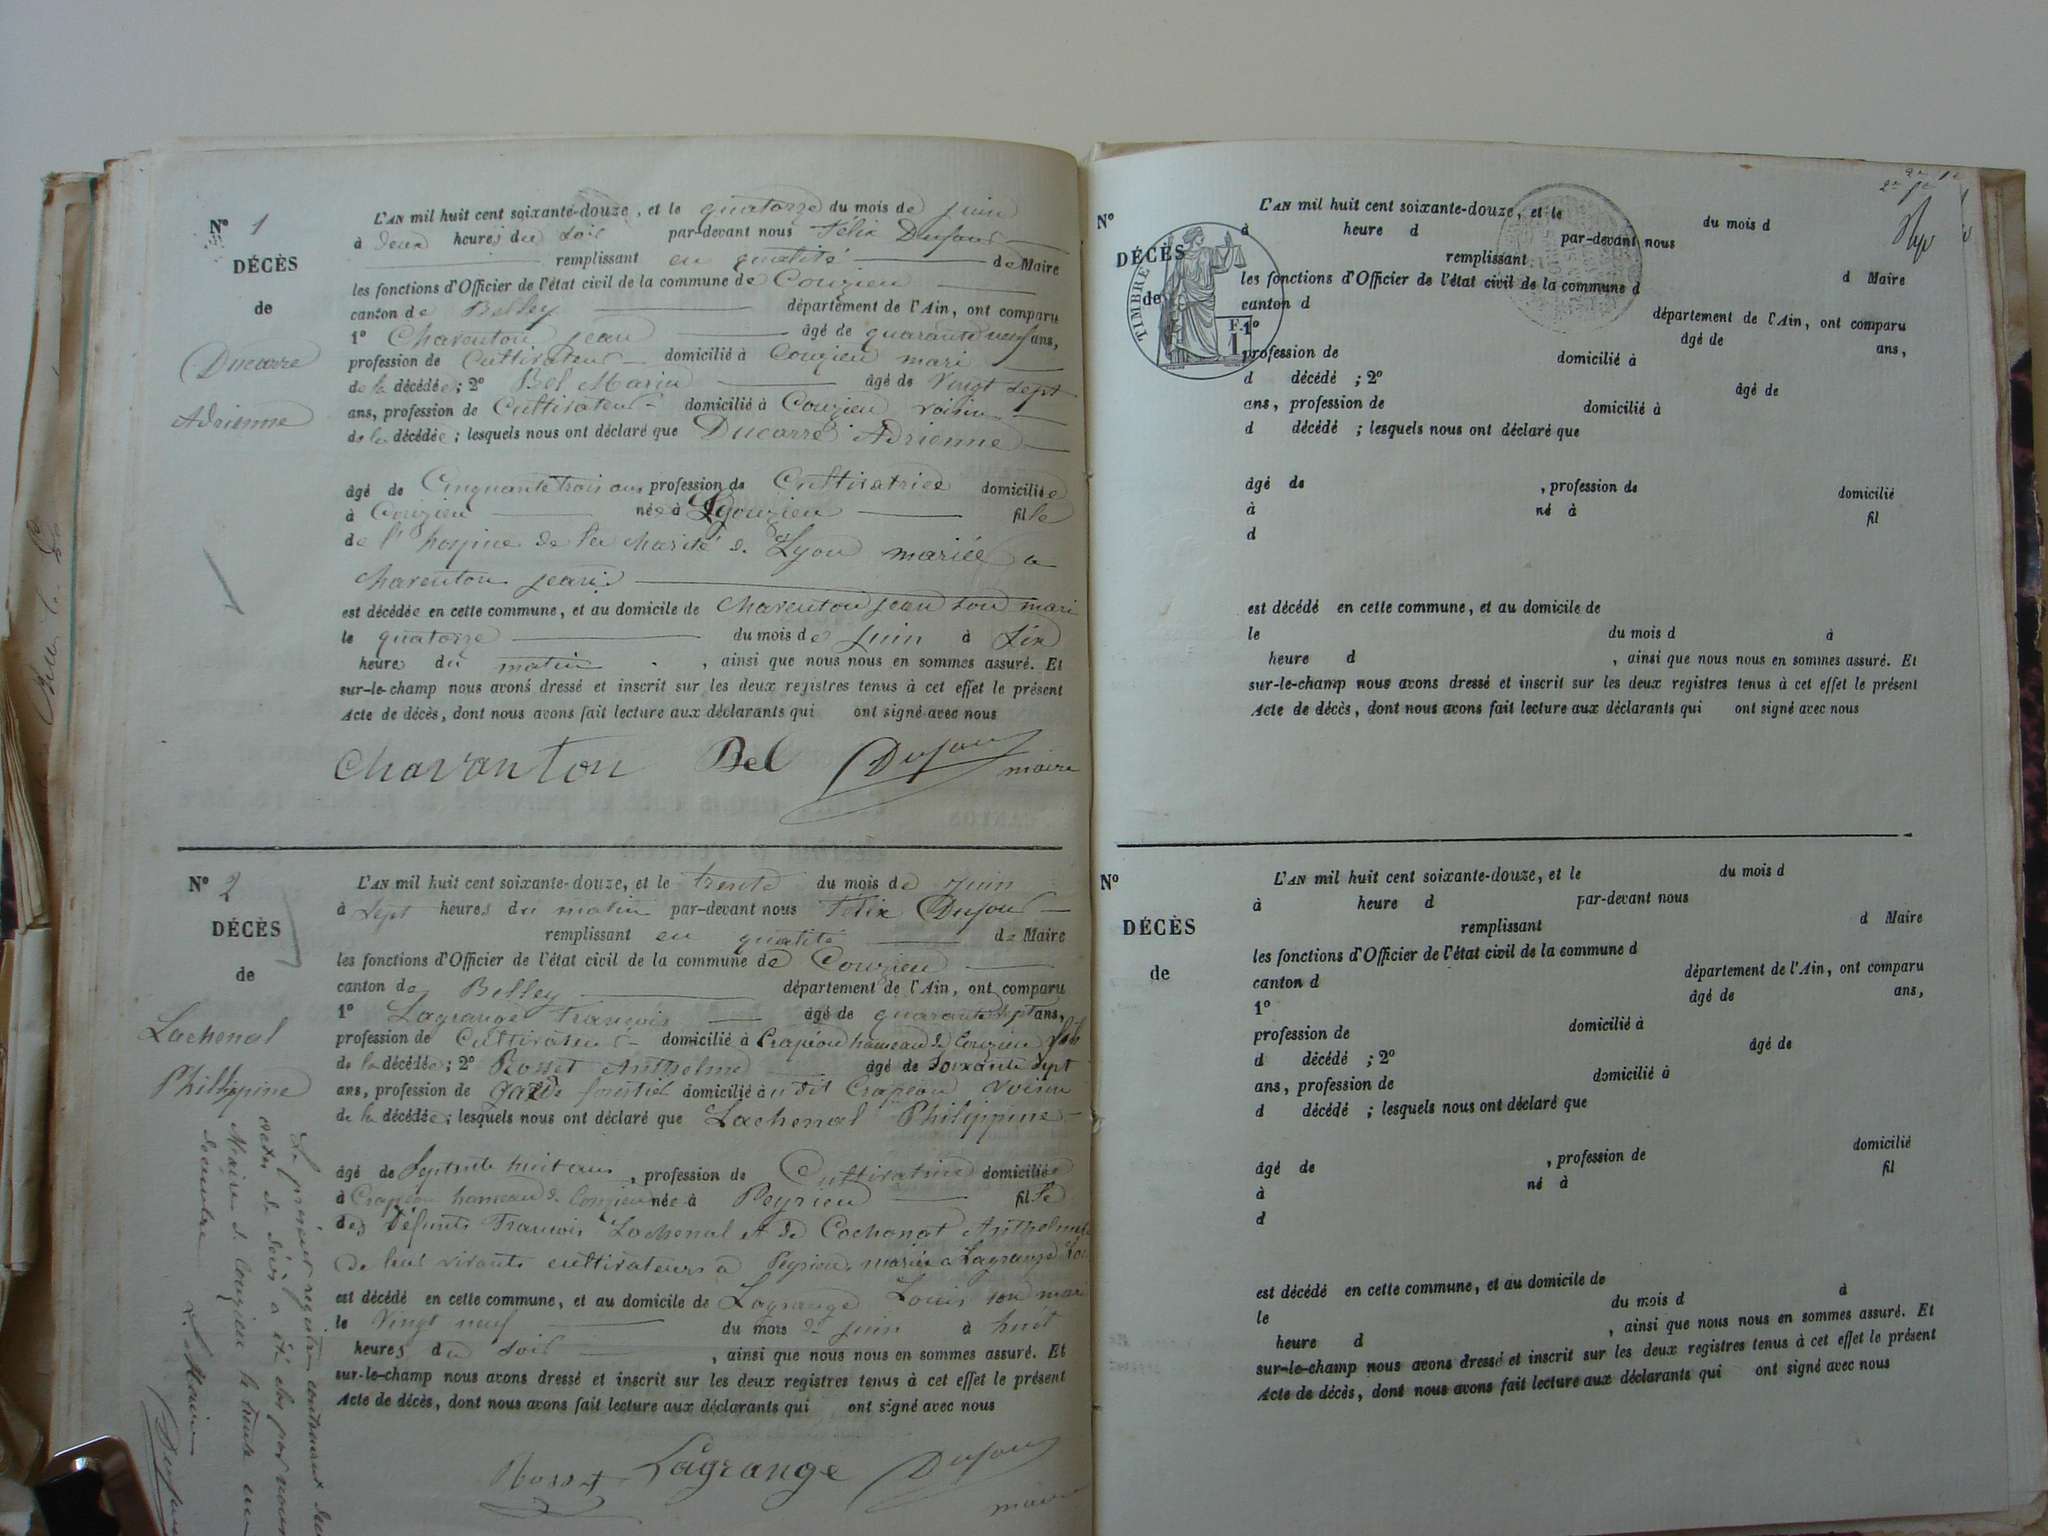 N° 1
DÉCÈS
de
Ducarre
Adrienne
L'AN mil huit cent soixante-douze, et le quatorze du mois de juin
à deux heures du soir par-devant nous Félix Dufour
remplissant en qualité de Maire
les fonctions d'Officier de l'état civil de la commune de Conzieu
canton de Belley département de l'Ain, ont comparu
1° Charenton jean âgé de quarante neuf ans,
profession de Cultivateur domicilié à Conzieu mari
de la décédée; 2° Bel Marin âgé de Vingt sept
ans, profession de Cultivateur domicilié à Conzieu voisin
de la décédée; lesquels nous ont déclaré que Ducarre Adrienne
âgé de Cinquante trois ans profession de Cultivatrice domiciliée
à Conzieu née à fille
de l'hospice de la charité de Lyon mariée a
Charenton jean
est décédée en cette commune, et au domicile de Charenton jean son mari
le quatorze du mois de juin à six
heures du matin, ainsi que nous nous en sommes assuré. Et
sur-le-champ nous avons dressé et inscrit sur les deux registres tenus à cet effet le présent
Acte de décès, dont nous avons fait lecture aux déclarants qui ont signé avec nous
Chavanton Bel Dufour
maire
N° 2
DÉCÈS
de
Lachenal
Philippine
L'AN mil huit cent soixante-douze, et le trente du mois de juin
à sept heures du matin par-devant nous Félix Dufour
remplissant en qualité de Maire
les fonctions d'Officier de l'état civil de la commune de Conzieu
canton de Belley département de l'Ain, ont comparu
1° Lagrange francois âgé de quarante sept ans,
profession de Cultivateur domicilié à Crapéou hameau de Conzieu fils
de la décédée; 2° Rosset Anthelme âgé de soixante sept
ans, profession de garde forestier domicilié à udit Crapeou voisin
de la décédée; lesquels nous ont déclaré que Lachenal Philippine
âgé de Septante huit ans, profession de Cultivatrice domiciliée
à Crapeou hameau de Conzieu née à Peyrieu fille
des défunts Francois Lachenal et de Cochonat Anthelmette
de leur vivants cultivateurs a Peyrieu mariée a Lagrange Lou
est décédé en cette commune, et au domicile de Lagrange Louis son mari
le Vingt neuf du mois de juin à huit
heures du soir, ainsi que nous nous en sommes assuré. Et
sur-le-champ nous avons dressé et inscrit sur les deux registres tenus à cet effet le présent
Acte de décès, dont nous avons fait lecture aux déclarants qui ont signé avec nous
Rosset Lagrange Dufour
maire
Le présent registre contenant deux
actes de décès a été clos par nous
Maire de Conzieu le trente un
décembre
Le Maire
Dufour
N°
DÉCÈS
de
TIMBRE
F.
1
L'AN mil huit cent soixante-douze, et le du mois d
à heure d par-devant nous
remplissant
les fonctions d'Officier de l'état civil de la commune d d Maire
canton d département de l'Ain, ont comparu
1° âgé de ans,
profession de domicilié à
d décédé ; 2° âgé de
ans, profession de domicilié à
d décédé ; lesquels nous ont déclaré que
âgé de , profession de domicilié
à né à fil
d
est décédé en cette commune, et au domicile de
le du mois d à
heure d , ainsi que nous nous en sommes assuré. Et
sur-le-champ nous avons dressé et inscrit sur les deux registres tenus à cet effet le présent
Acte de décès, dont nous avons fait lecture aux déclarants qui ont signé avec nous
N°
DÉCÈS
de
L'AN mil huit cent soixante-douze, et le du mois d
à heure d par-devant nous
remplissant d Maire
les fonctions d'Officier de l'état civil de la commune d
canton d département de l'Ain, ont comparu
1° âgé de ans,
profession de domicilié à
d décédé ; 2° âgé de
ans, profession de domicilié à
d décédé ; lesquels nous ont déclaré que
âgé de , profession de domicilié
à né à fil
d
est décédé en cette commune, et au domicile de
le du mois d à
heure d , ainsi que nous nous en sommes assuré. Et
sur-le-champ nous avons dressé et inscrit sur les deux registres tenus à cet effet le présent
Acte de décès, dont nous avons fait lecture aux déclarants qui ont signé avec nous